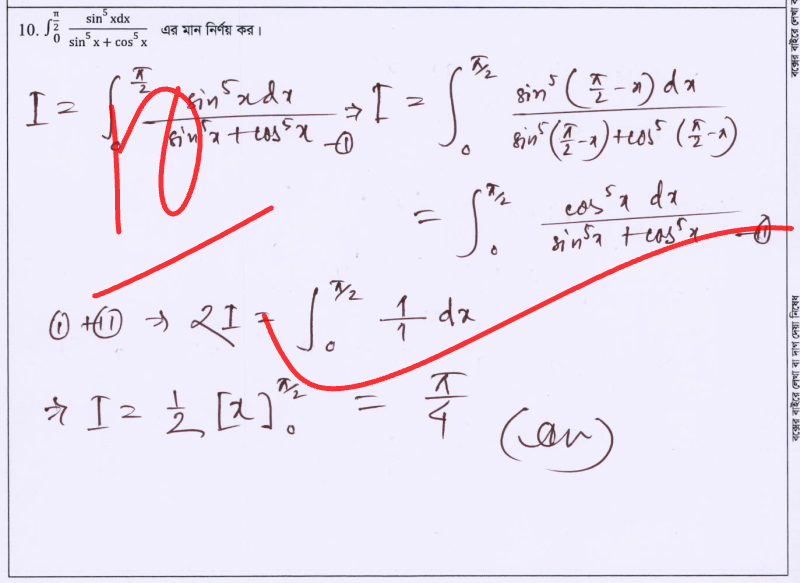 10. ∫₀^(π/2) sin⁵xdx / (sin⁵x + cos⁵x) এর মান নির্ণয় কর।
I = ∫₀^(π/2) sin⁵x dx / (sin⁵x + cos⁵x) —① ⇒ I = ∫₀^(π/2) sin⁵(π/2 - x) dx / (sin⁵(π/2 - x) + cos⁵(π/2 - x))
= ∫₀^(π/2) cos⁵x dx / (sin⁵x + cos⁵x) —⑪
① + ⑪ ⇒ 2I = ∫₀^(π/2) 1/1 dx
⇒ I = 1/2 [x]₀^(π/2) = π/4 (an)
10
বক্সের বাইরে লেখা বা দাগ দেয়া নিষেধ
বক্সের বাইরে লেখা ব